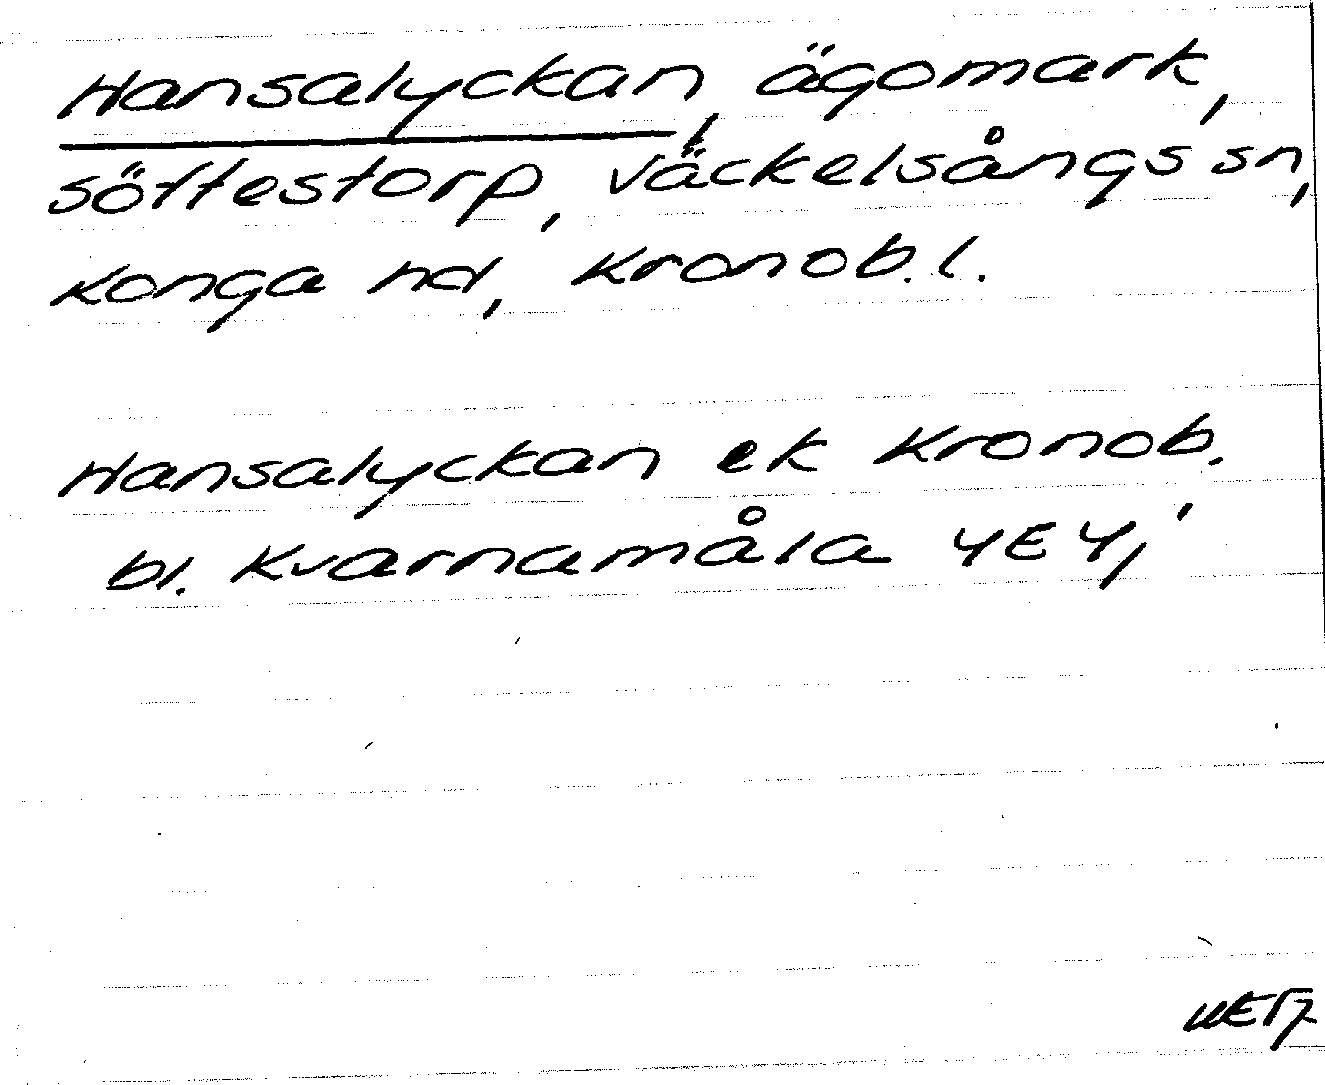 Hansalyckan, ägomark,
Söttestorp, Väckelsångs sn,
Konga hd, Kronob. l.
Hansalyckan ek Kronob.
bl. Kvarnamåla 4E4j